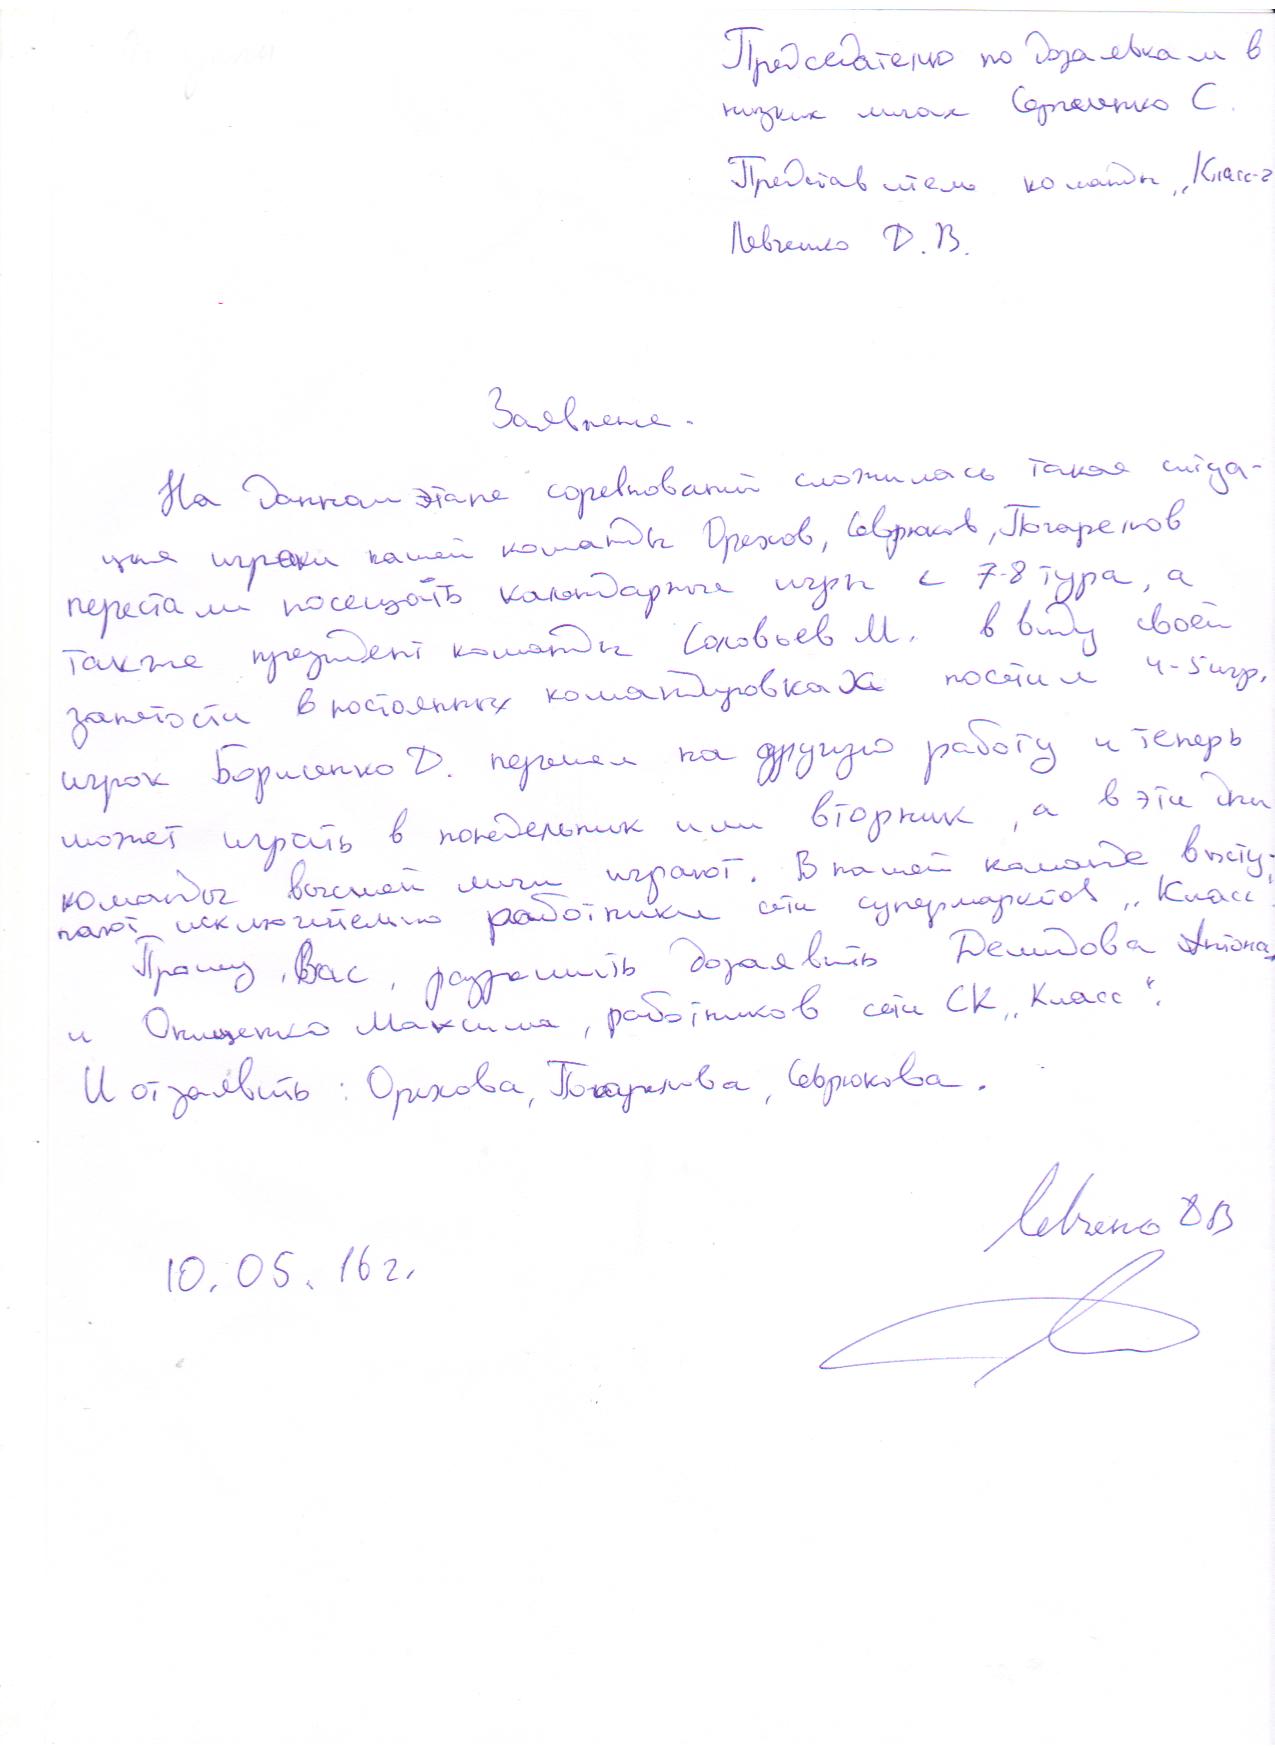 Председателю по дозаявкам в
низких лигах Сергиенко С.
Представителю команды „Класс-2
Левченко Д.В.
Заявление.
На данном этапе соревнований сложилась такая ситуа-
ция игроки нашей команды Орехов, Севрюков, Погорелов
перестали посещать календарные игры с 7-8 тура, а
также президент команды Соловьев М. в виду своей
занятости в постоянных командировках посетил 4-5 игр,
игрок Борисенко Д. перешел на другую работу и теперь
может играть в понедельник или вторник, а в эти дни
команды высшей лиги играют. В нашей команде высту-
пают исключительно работники сети супермаркетов „Класс".
Прошу, Вас, разрешить дозаявить Демидова Антона
и Онищенко Максима, работников сети СК „Класс".
И отзаявить: Орехова, Погорелова, Севрюкова.
Левченко ДВ
10.05.16г.